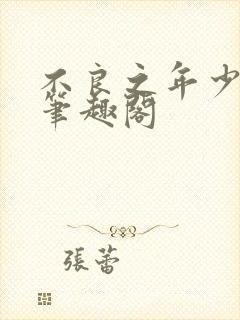 不良之年少
筆趣閣
張蕾